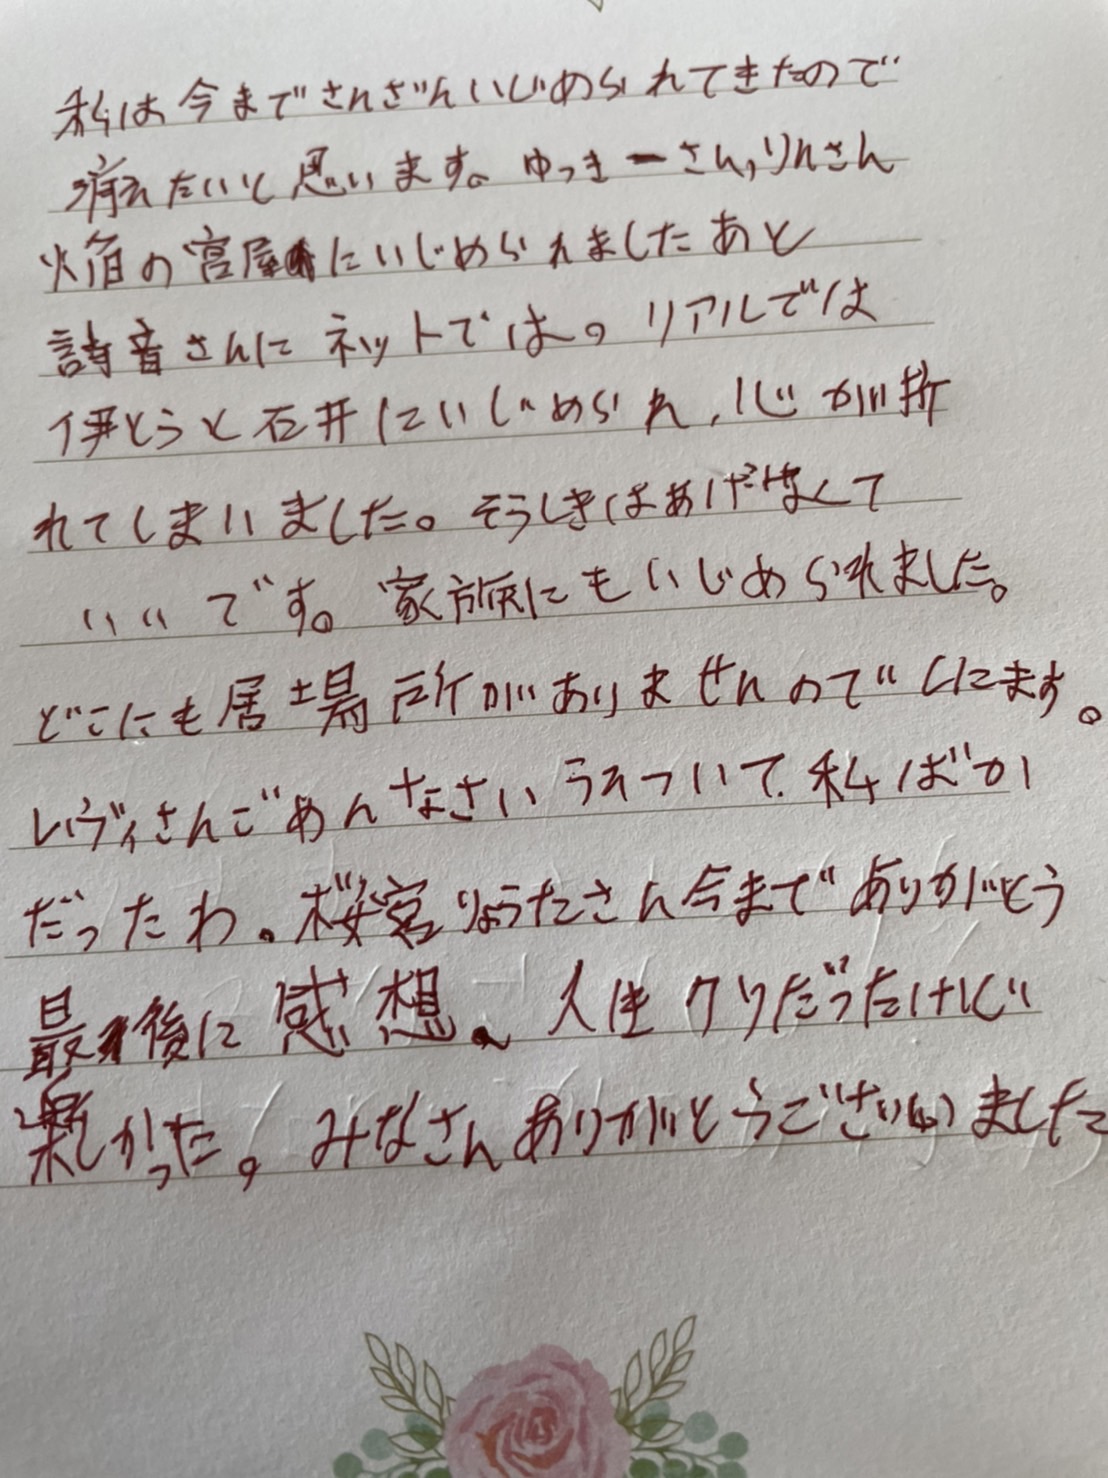 私は今までさんざんいじめられてきたので
消えたいと思います。ゆっきーさん,りんさん
焔の宮屋にいじめられましたあと
詩音さんにネットでは。リアルでは
伊とうと石井にいじめられ,心が折
れてしまいました。そうしきはあげなくて
いいです。家族にもいじめられました。
どこにも居場所がありませんのでしにます。
レヴィさんごめんなさいうそついて.私ばか
だったわ。桜宮りょうたさん今までありがとう
最後に感想、人生クソだったけど
楽しかった。みなさんありがとうございました